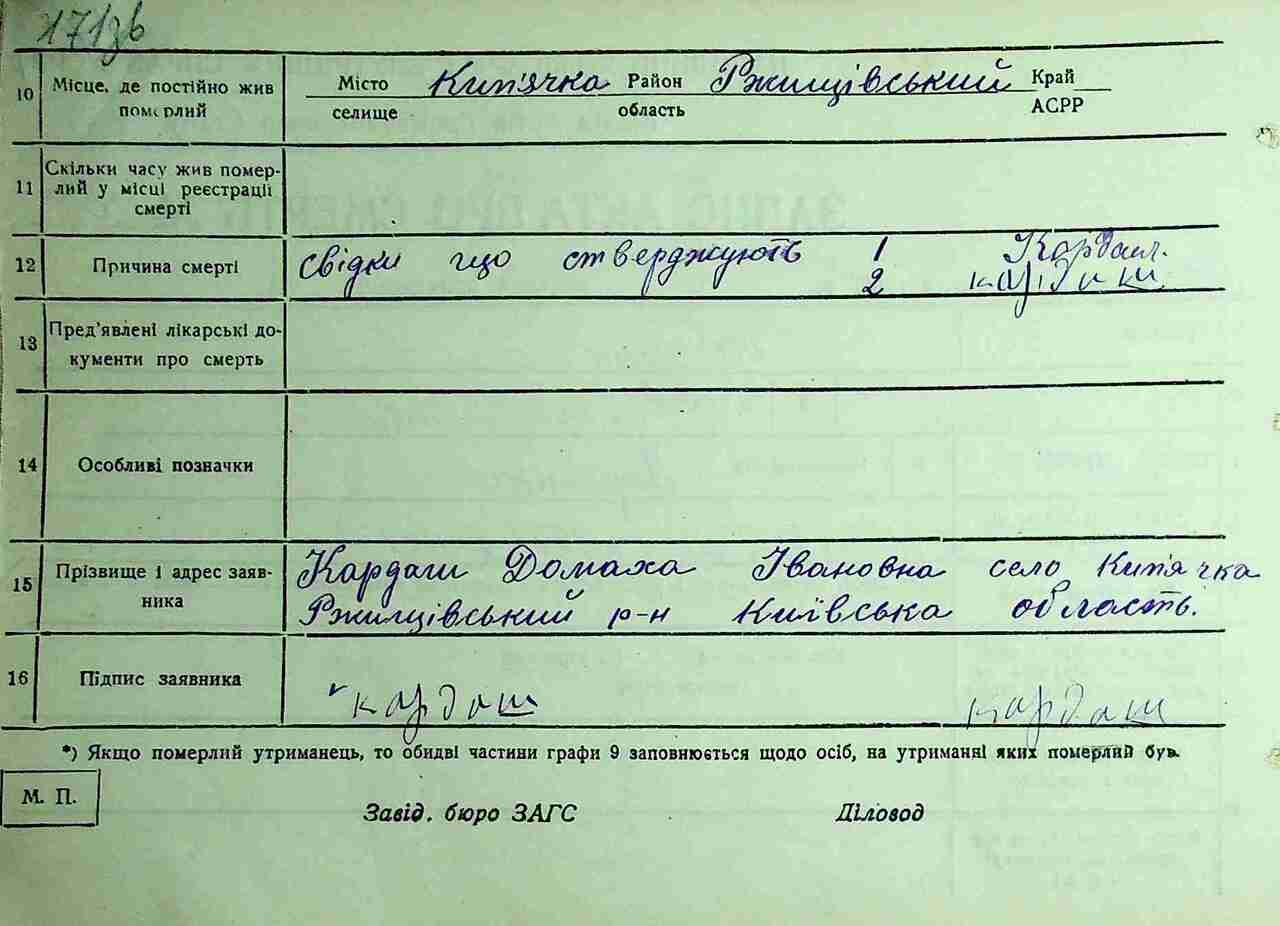 171зв
10 Місце, де постійно жив померлий Місто селище Кип'ячка Район область Ржищівський Край АСРР
11 Скільки часу жив помер-
лий у місці реєстрації
смерті
12 Причина смерті свідки що стверджують 1 Кардаш.
2 кардаш
13 Пред'явлені лікарські до-
кументи про смерть
14 Особливі позначки
15 Прізвище і адрес заяв-
ника
Кардаш Домаха Івановна село Кип'ячка
Ржищівський р-н Київська область.
16 Підпис заявника кардаш кардаш
*) Якщо померлий утриманець, то обидві частини графи 9 заповнюється щодо осіб, на утриманні яких померлий був.
М. П.
Завід. бюро ЗАГС Діловод